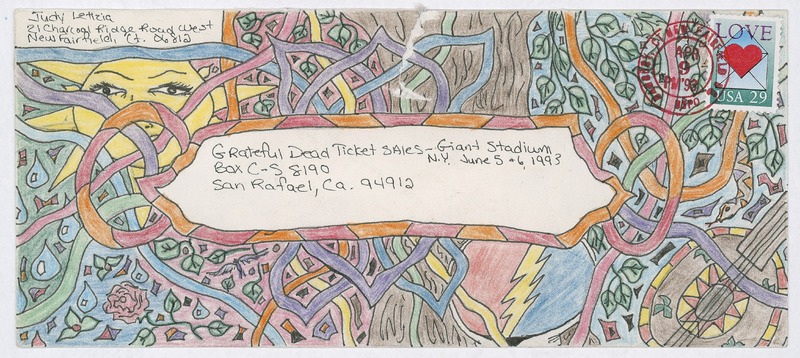 Judy Letizia
21 Charcoal Ridge Road West
New Fairfield, Ct. 06812
LOVE
USA 29
APR
9
PM
Grateful Dead Ticket SAles - Giant Stadium
N.Y. June 5 & 6, 1993
Box C-S 8190
San Rafael, Ca. 94912